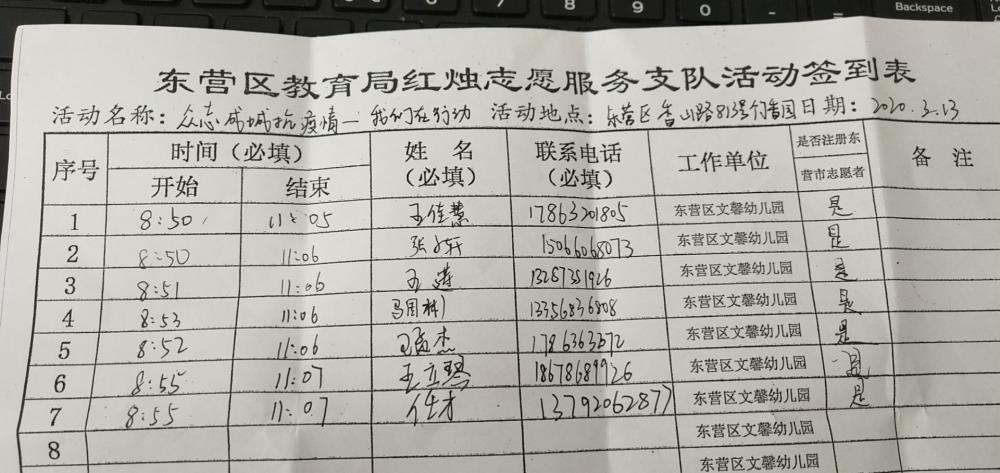 东营区教育局红烛志愿服务支队活动签到表
活动名称：众志成城抗疫情—我们在行动 活动地点：东营区香山路 日期：2020.3.13
序号 时间（必填） 姓名（必填） 联系电话（必填） 工作单位 是否注册东营市志愿者 备注
开始 结束
1 8:50 11:05 王佳慧 17863201805 东营区文馨幼儿园 是
2 8:50 11:06 15066068073 东营区文馨幼儿园 是
3 8:51 11:06 王莲 13287351926 东营区文馨幼儿园 是
4 8:53 11:06 13356836808 东营区文馨幼儿园 是
5 8:52 11:06 东营区文馨幼儿园 是
6 8:55 11:07 王立琴 18678689926 东营区文馨幼儿园 是
7 8:55 11:07 13792062877 东营区文馨幼儿园 是
8 东营区文馨幼儿园
东营区文馨幼儿园
Backspace
7 8 9 0